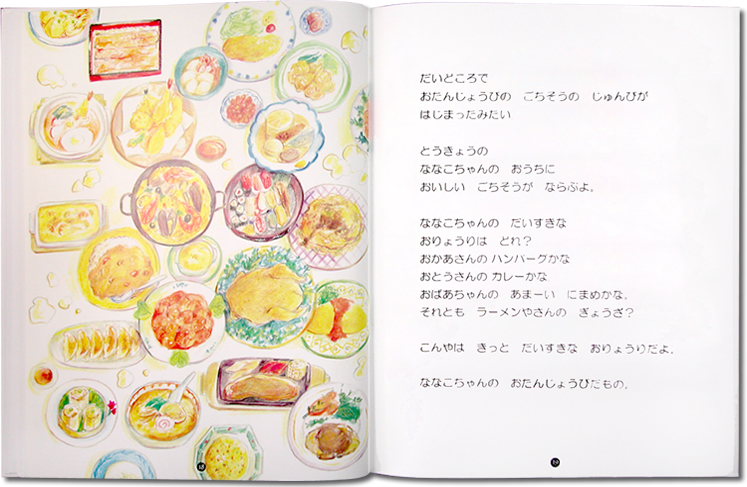 だいどころで
おたんじょうびの　ごちそうの　じゅんびが
はじまったみたい
とうきょうの
ななこちゃんの　おうちに
おいしい　ごちそうが　ならぶよ。
ななこちゃんの　だいすきな
おりょうりは　どれ？
おかあさんの ハンバーグかな
おとうさんの カレーかな
おばあちゃんの　あまーい　にまめかな。
それとも　ラーメンやさんの　ぎょうざ？
こんやは　きっと　だいすきな　おりょうりだよ。
ななこちゃんの　おたんじょうびだもの。
18
19